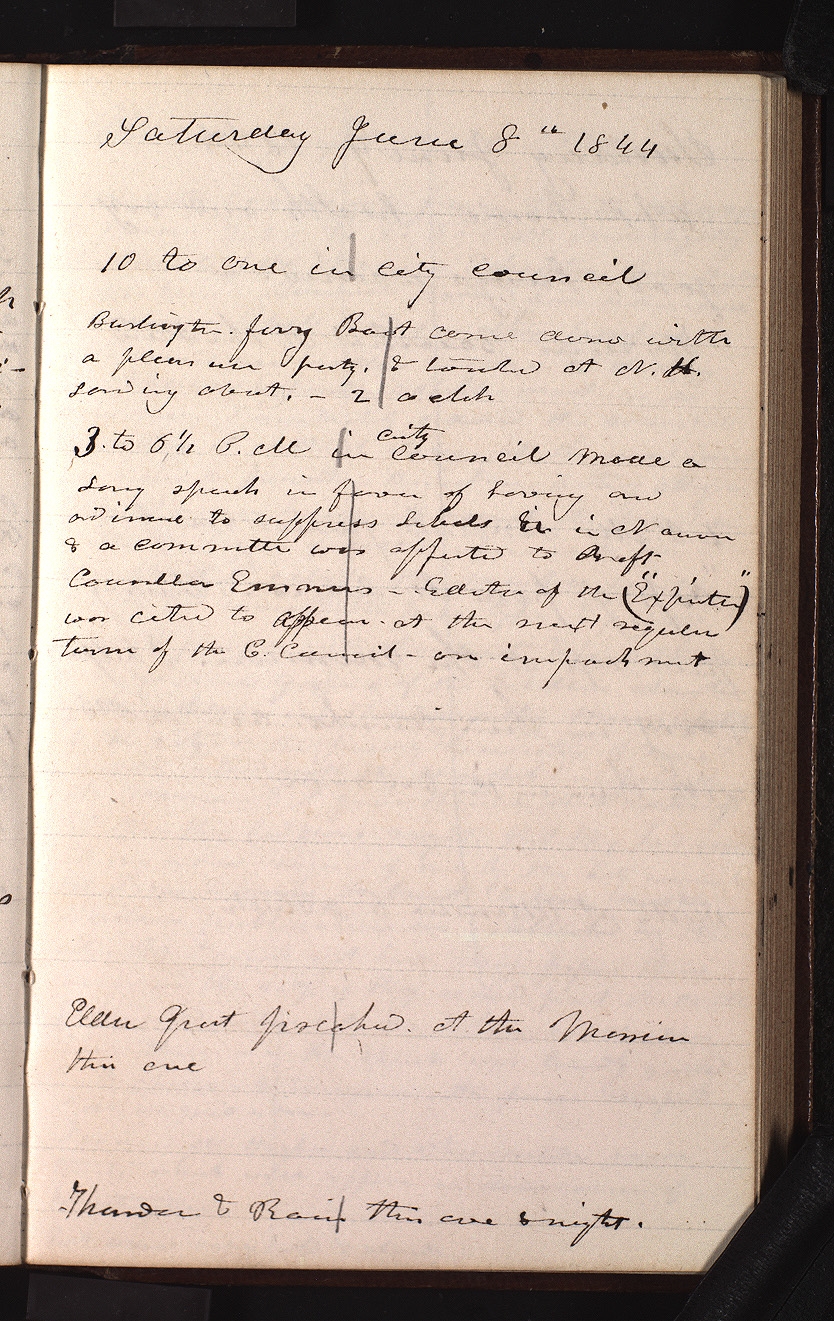 Saturday June 8th 1844
10 to one in city council
Burlington. ferry Boat come down with
a pleasure party. & touched at N. H.
landing about. - 2 oclck
3. to 6½ P.M in city council made a
long speech in favor of having an
ordinance to suppress Libels &c in Nauvoo
& a committee was appointed to draft
Councillor Emmons - Editor of the ("Expositor")
was cited to appear. at the next regular
term of the C. Council - on impeachment
Elder Grant preached. at the Mansion
this eve
Thunder & Rain this eve & night.